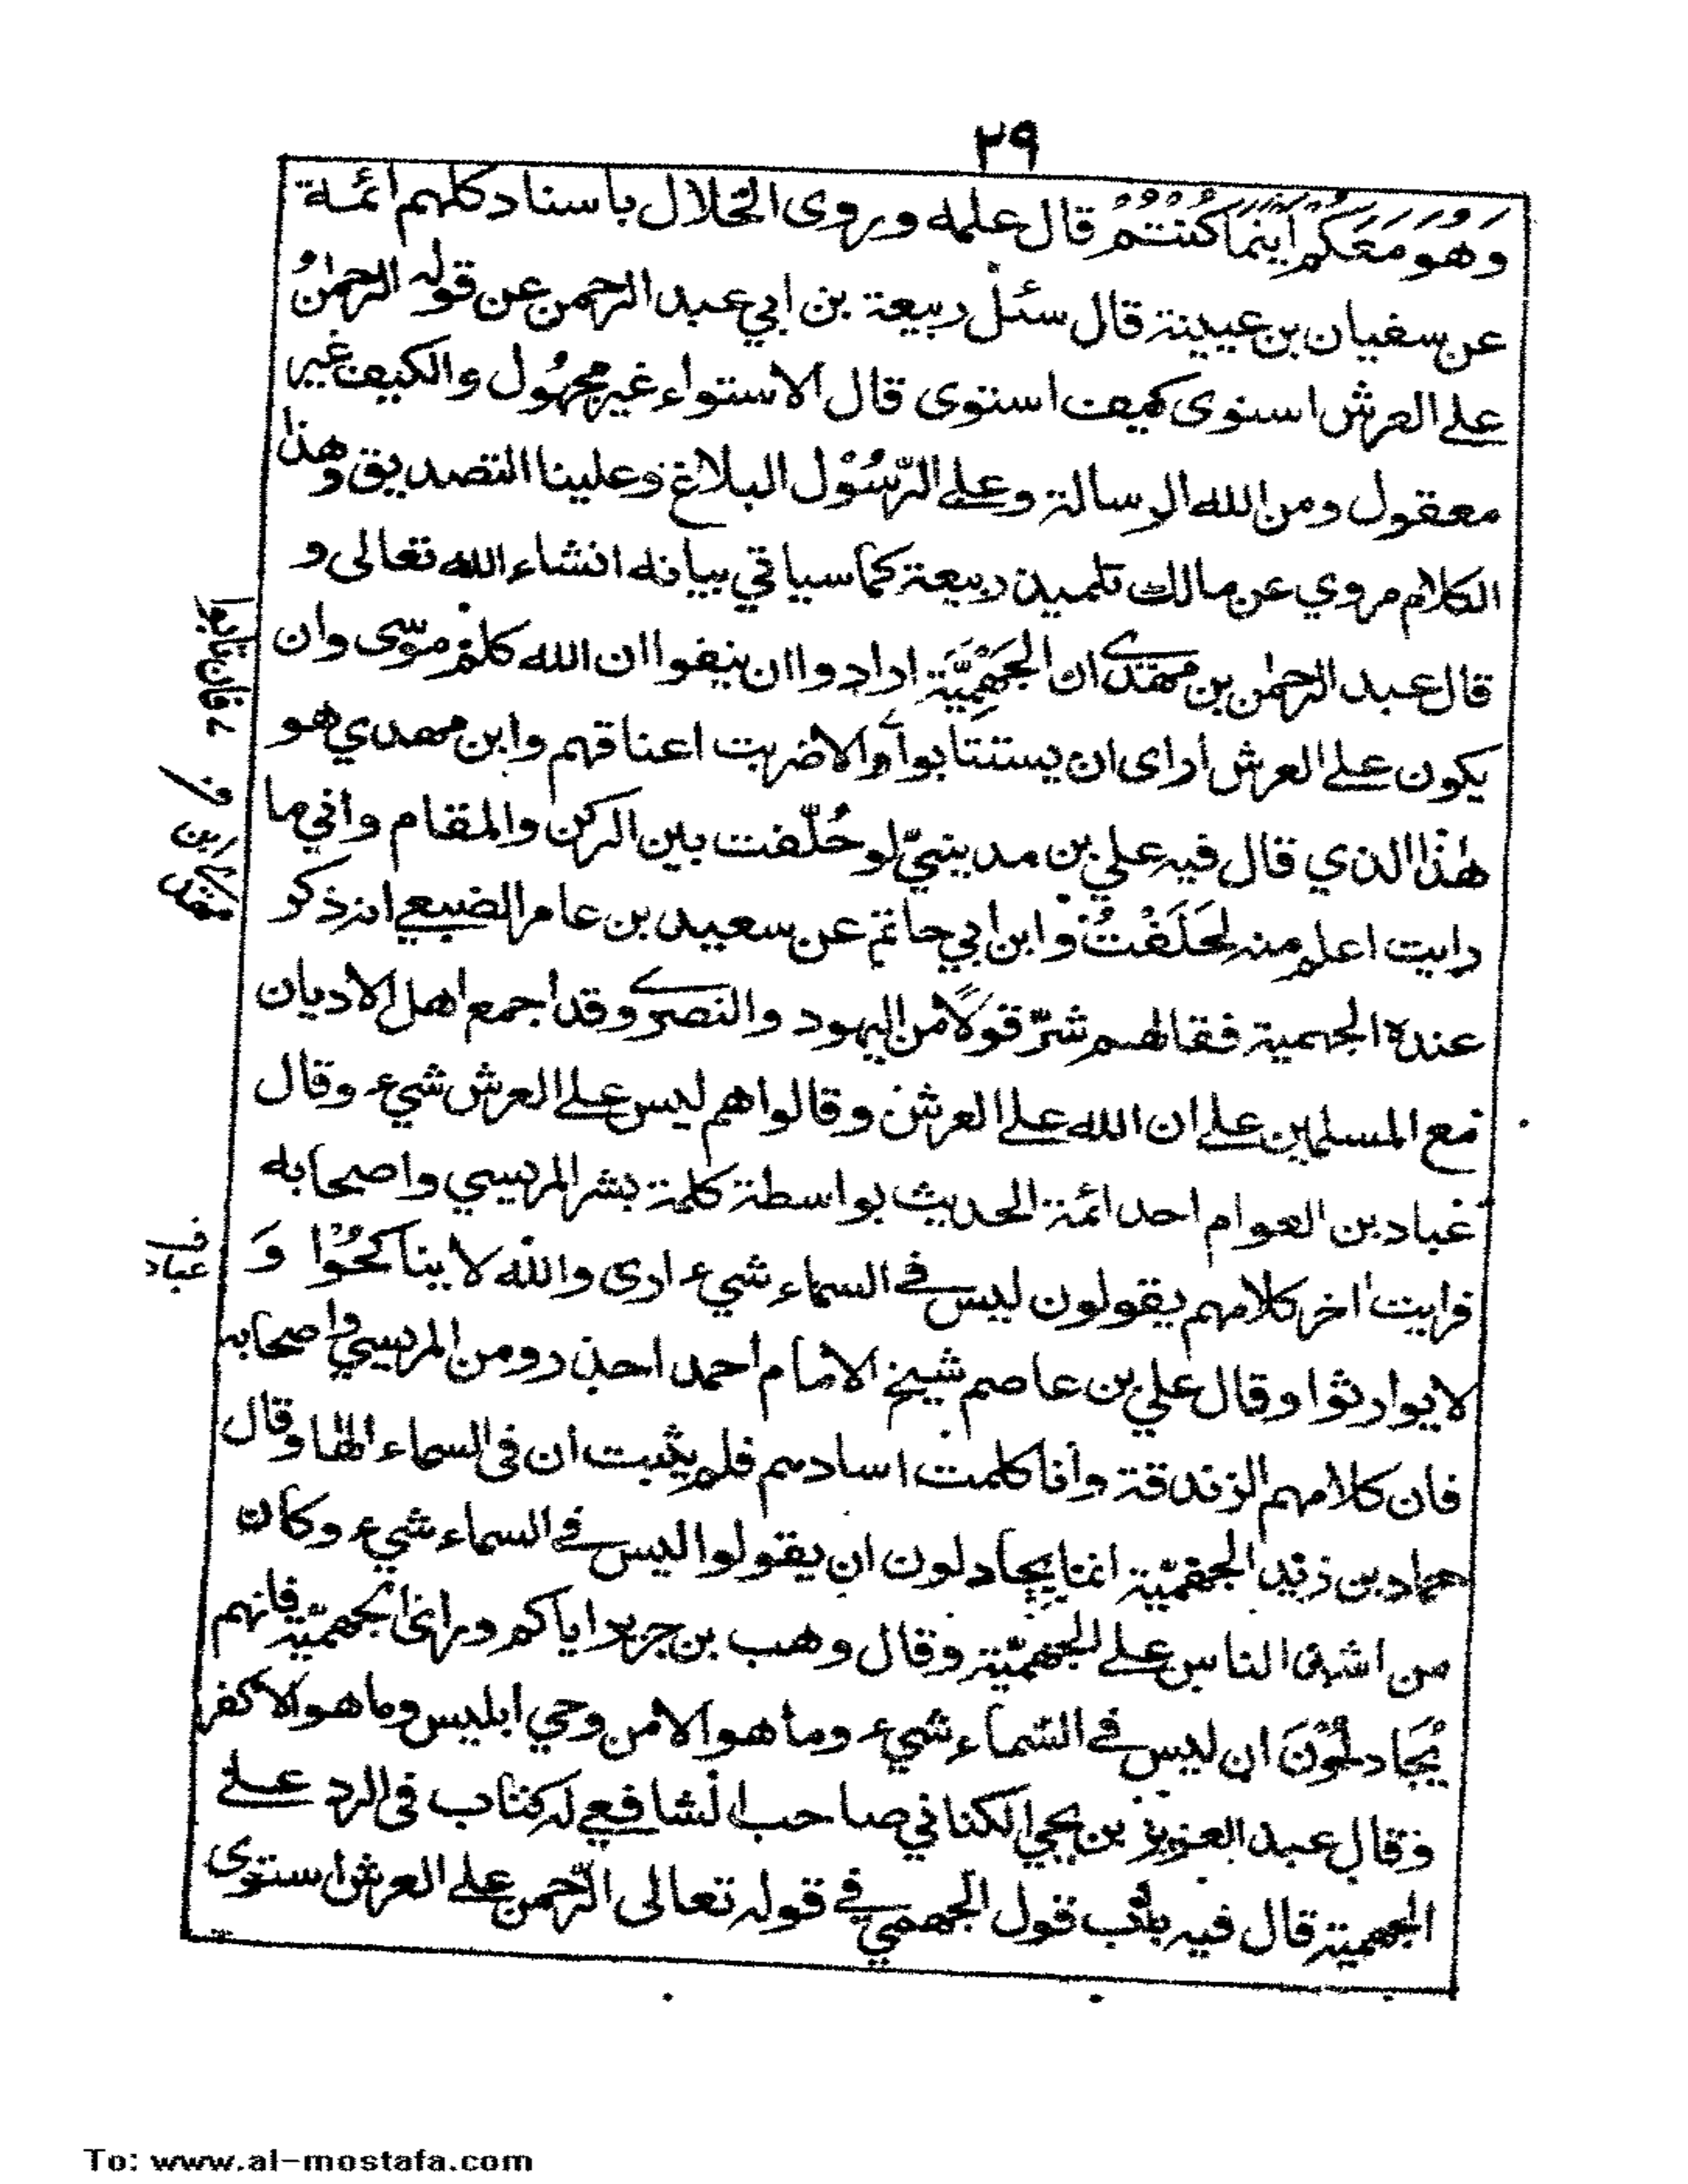 ٢٩
وَهُوَ مَعَكُمْ اَيْنَمَا كُنْتُمْ قال علمه وروى الخلال باسناد كلهم ائمة
عن سفيان بن عيينة قال سئل ربيعة بن ابي عبد الرحمن عن قوله الرحمٰنُ
على العرش استوى كيف استوى قال الاستواء غير مجهُول والكيف غير
معقول ومن الله الرسالة وعلى الرّسُوْل البلاغ وعلينا التصديق وهذا
الكلام مروي عن مالك تلميذ ربيعة كما سياتي بيانه انشاء الله تعالى و
قال عبد الرحمٰن بن مهدى ان الجَهْمِيَّة ارادوا ان ينفوا ان الله كلم موسٰى وان
يكون على العرش ارى ان يستتابوا والا ضربت اعناقهم وابن مهدي هو
هٰذا الذي قال فيه علي بن مدينيّ لو حُلّفت بين الركن والمقام واني ما
رايت اعلم منه لحَلَفْتُ وابن ابي حاتم عن سعيد بن عامر الضبعي انه ذكر
عنده الجهمية فقال هم شرّ قولًا من اليهود والنصرى وقد اجمع اهل الاديان
مع المسلمين على ان الله على العرش وقالوا هم ليس على العرش شيء وقال
عباد بن العوام احد ائمة الحديث بواسطة كلمة بشر المريسي واصحابه
فرايت اخر كلامهم يقولون ليس في السماء شيء ارى والله لا يناكحُوْا وَ
لا يوارثوا وقال علي بن عاصم شيخ الامام احمد احذروا من المريسي واصحابه
فان كلامهم الزندقة وأنا كلمت اسادهم فلم يثبت ان فى السماء الها وقال
حماد بن زيد الجهميّة انما يجادلون ان يقولوا ليس في السماء شيء وكان
من اشد الناس على الجهميّة وقال وهب بن جرير اياكم وراى الجهميّة فانهم
يُجَادلُوْنَ ان ليس في السّماء شيء وما هو الا من وحي ابليس وما هو الا كفر
وقال عبد العزيز بن يحيى الكناني صاحب الشافعي له كتاب فى الرد على
الجهمية قال فيه باب قول الجهمي في قوله تعالى الرّحمن على العرش استوى
ف
عباد
To: www.al-mostafa.com